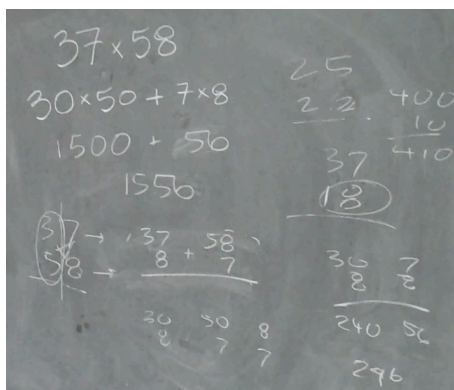 37×58
30×50 + 7×8
1500 + 56
1556
37 → 37 58
58 → 8 + 7
30 50 8
8 7 7
25
22.
400
10
410
37
18
30 7
8 8
240 56
296